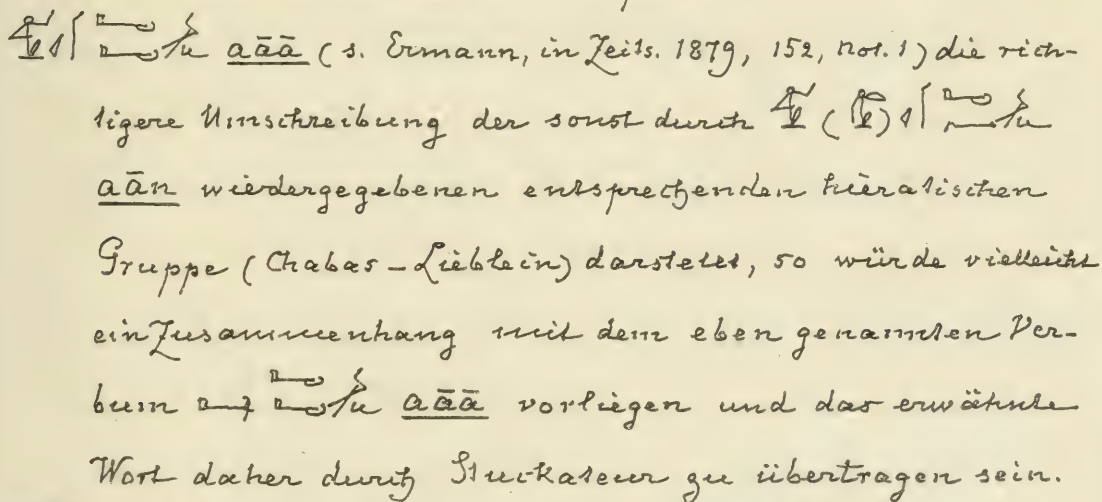 aāā (s. Ermann, in Zeits. 1879, 152, not. 1) die rich-
tigere Umschreibung der sonst durch ( )
aān wiedergegebenen entsprechenden hieratischen
Gruppe (Chabas-Lieblein) darstellt, so würde vielleicht
ein Zusammenhang mit dem eben genannten Ver-
bum aāā vorliegen und das erwähnte
Wort daher durch Stuckateur zu übertragen sein.